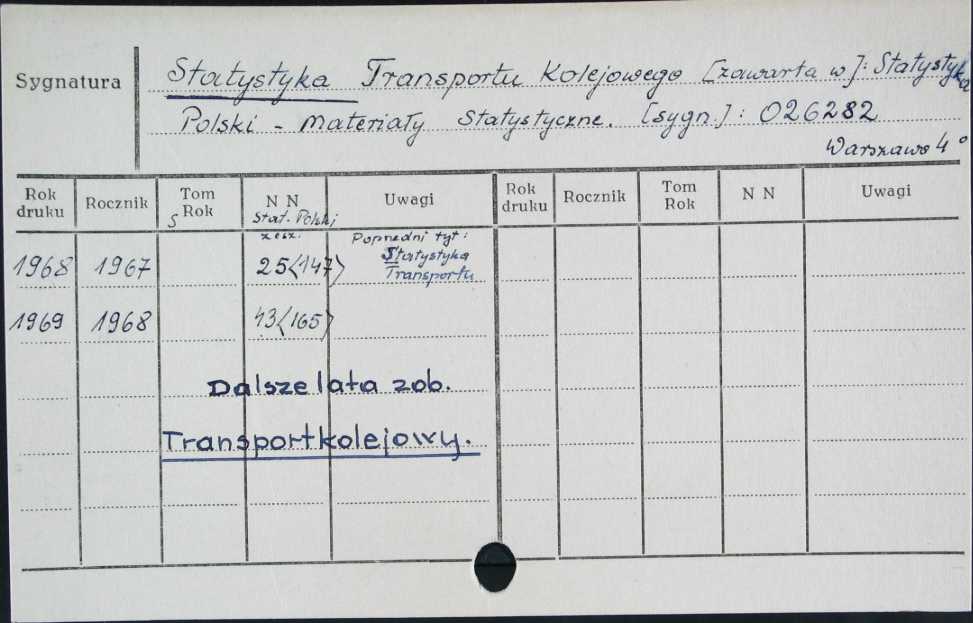 Sygnatura
Statystyka Transportu Kolejowego [zawarta w]: Statystyka
Polski - Materiały Statystyczne. [sygn.]: 026282
Warszawa 4°
Rok druku Rocznik Tom Rok N N Uwagi Rok druku Rocznik Tom Rok N N Uwagi
S Stat. Polski
zesz. Poprzedni tyt:
1968 1967 25<147> Statystyka Transportu
1969 1968 43<165>
Dalsze lata zob.
Transport kolejowy.